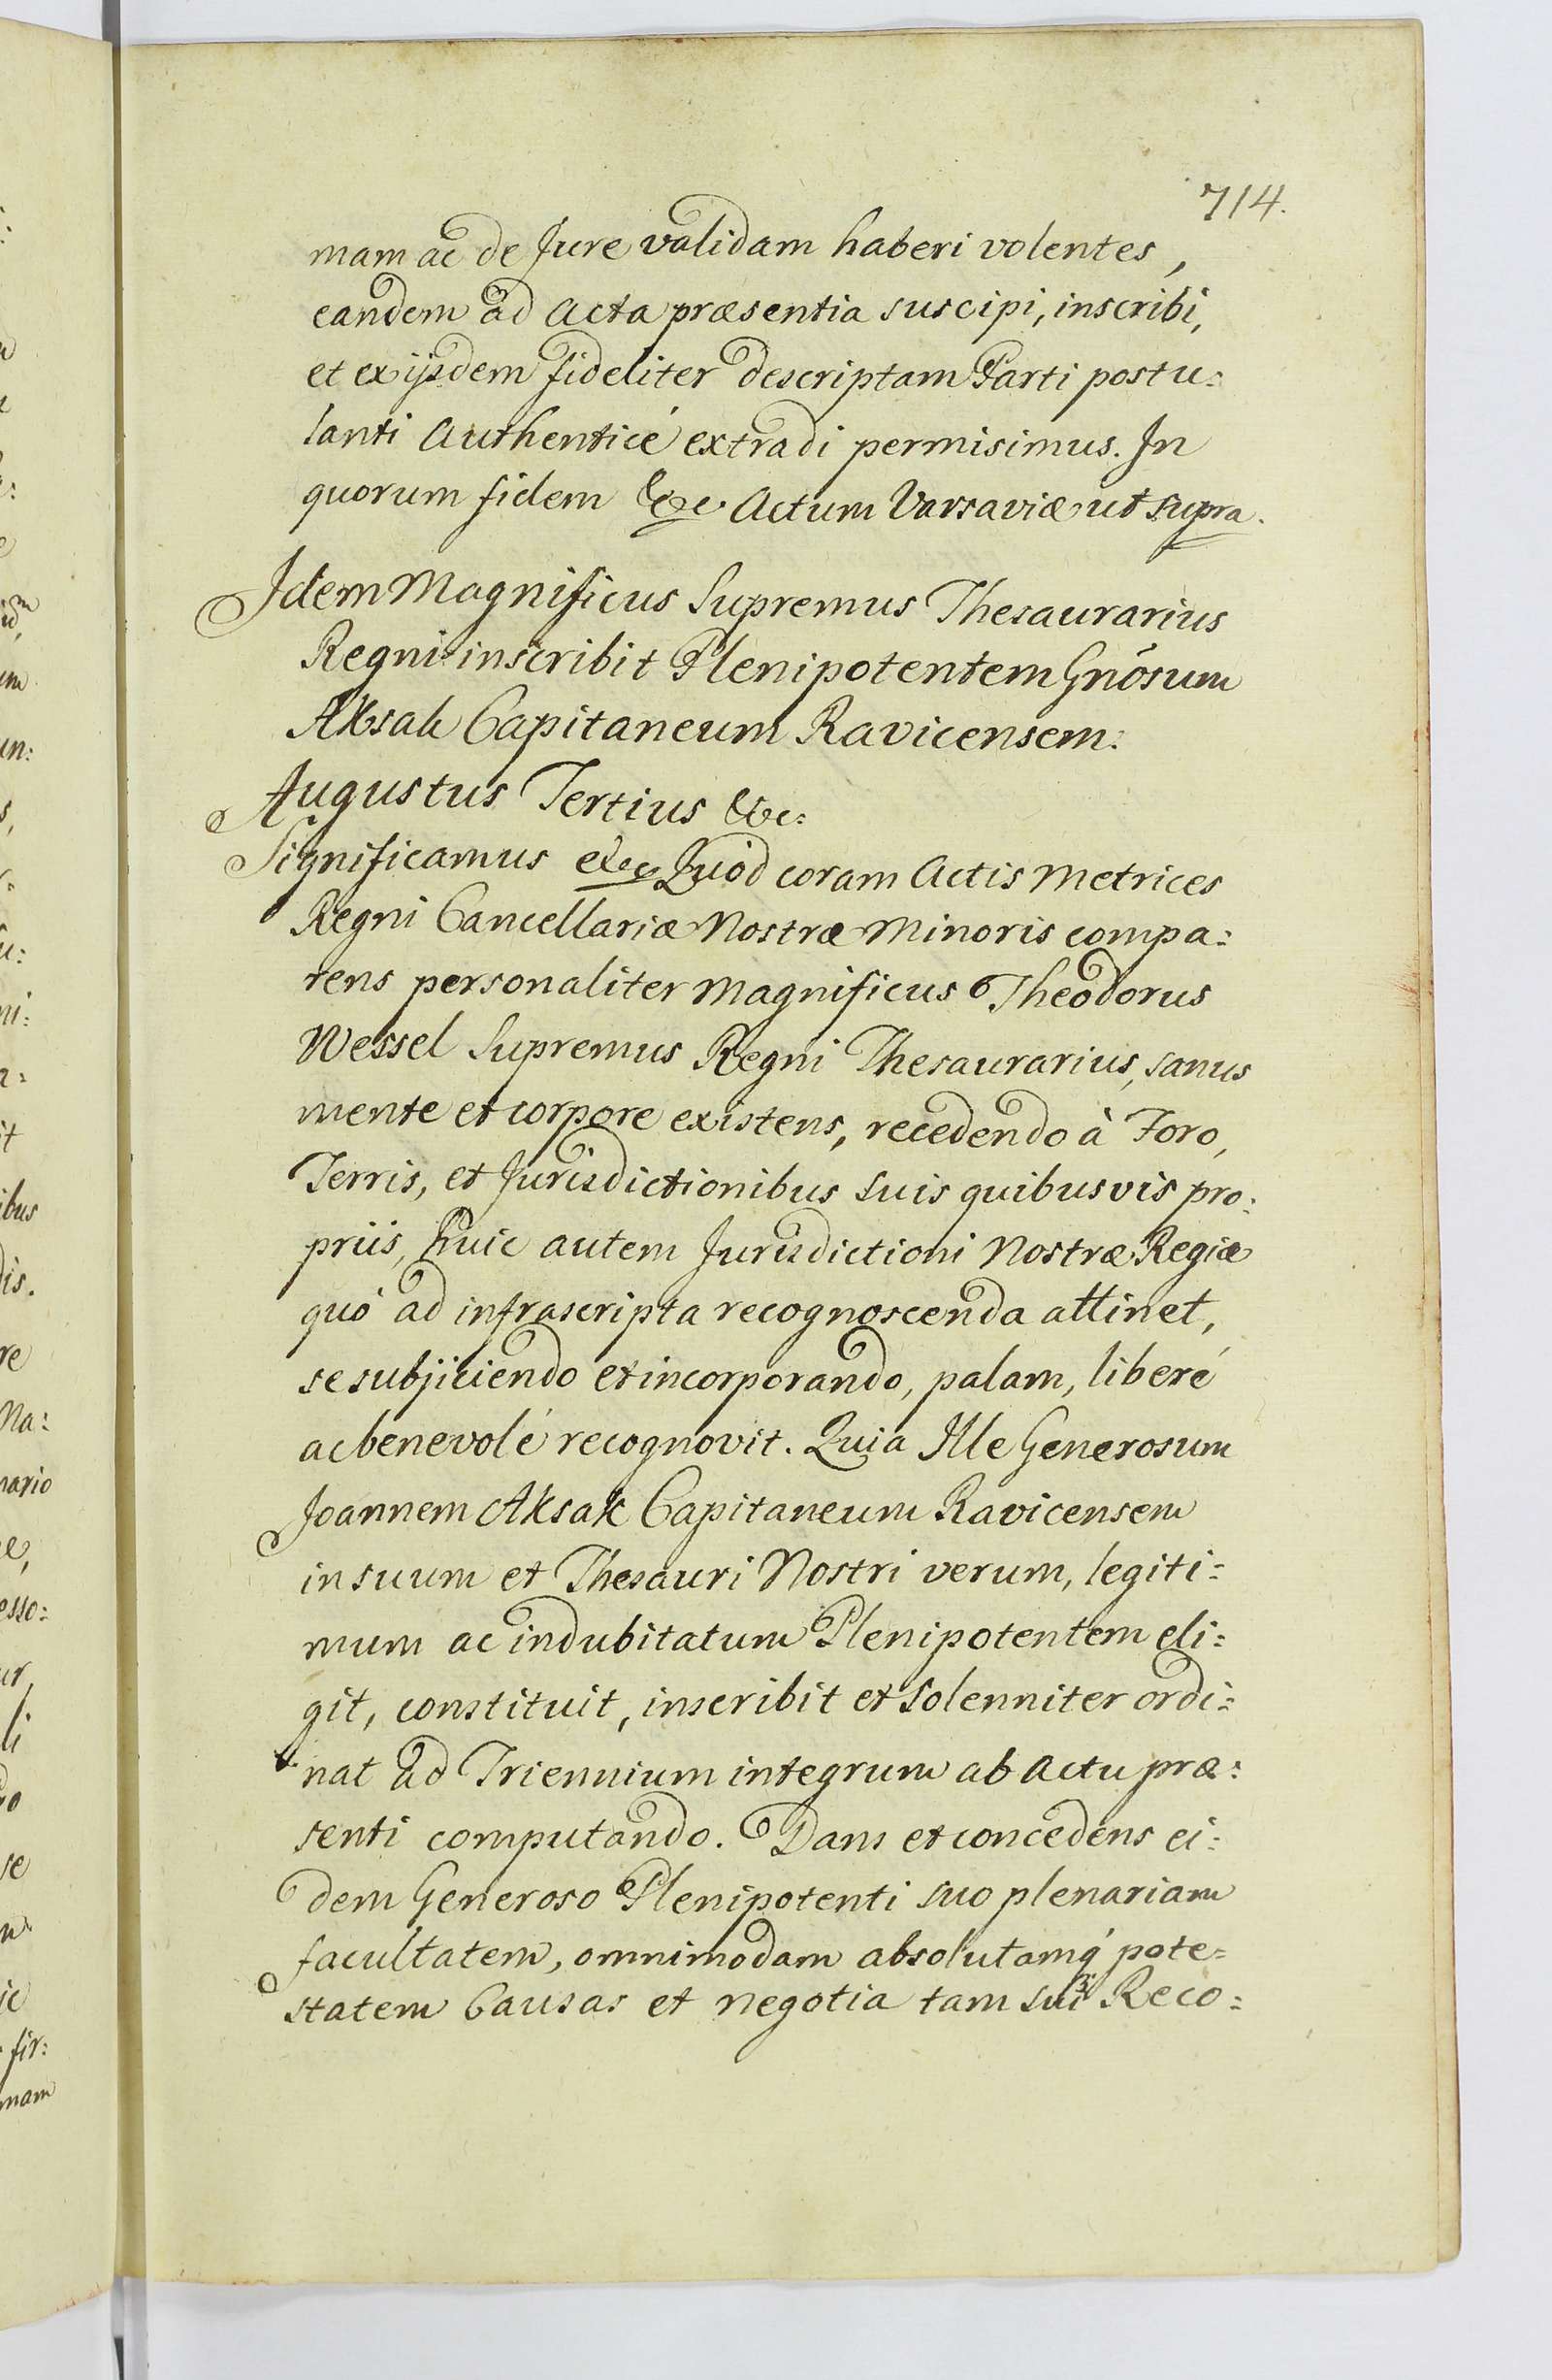 714.
mam ac de Jure validam haberi volentes,
eandem ad Acta præsentia suscipi, inscribi,
et ex ijsdem fideliter descriptam Parti postu:
lanti Authenticé extradi permisimus. In
quorum fidem &c. Actum Varsaviæ ut supra.
Idem Magnificus Supremus Thesaurarius
Regni inscribit Plenipotentem Gnôsum
Aksak Capitaneum Ravicensem.
Augustus Tertius &c:
Significamus &c. Quod coram Actis Metrices
Regni Cancellariæ Nostræ Minoris compa:
rens personaliter Magnificus Theodorus
Wessel Supremus Regni Thesaurarius, sanus
mente et corpore existens, recedendo à Foro,
Terris, et Jurisdictionibus suis quibusvis pro:
priis, huic autem Jurisdictioni Nostræ Regiæ
quó ad infrascripta recognoscenda attinet,
se subjiciendo et incorporando, palam, liberé
ac benevolé recognovit. Quia Ille Generosum
Joannem Aksak Capitaneum Ravicensem
in suum et Thesauri Nostri verum, legiti:
mum ac indubitatum Plenipotentem eli:
git, constituit, inscribit et solenniter ordi:
nat ad Triennium integrum ab Actu præ:
senti computando. Dans et concedens ei:
dem Generoso Plenipotenti suo plenariam
facultatem, omnimodam absolutamq́ pote:
statem Causas et negotia tam sui Reco: